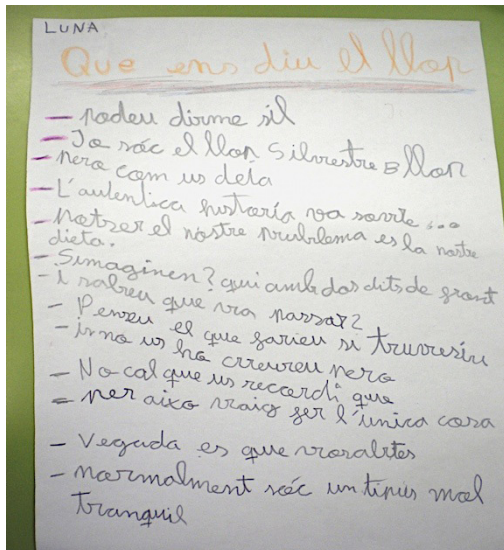 LUNA
Que ens diu el llop
– podeu dirme sil
– Jo sóc el llop Silvestre B llop
– pero com us deia
– L'autentica historia va sobre...
– potser el nostre problema es la nostre
dieta.
– Simaginen? qui amb dos dits de front
– i sabeu que va passar?
– Penseu el que farieu si
– i no us ho creureu pero
– No cal que us recordi que
– per aixo vaig fer l'única cosa
– Vegada es que vosaltres
– normalment sóc un tipus mol
tranquil